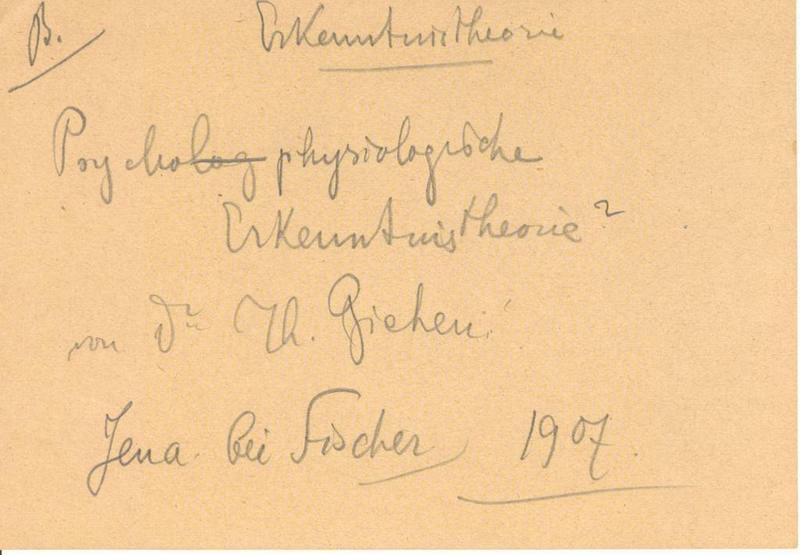 B. Erkenntnistheorie
Psycholog physiologische
Erkenntnistheorie²
von Dr Th. Ziehen.
Jena bei Fischer 1907.